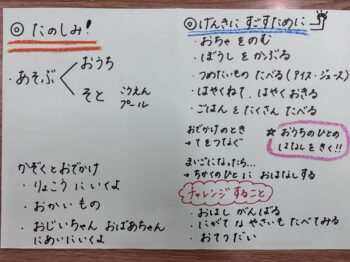 ◎ たのしみ!
・あそぶ
おうち
そと
こうえん
プール
かぞくとおでかけ
・りょこうにいくよ
・おかいもの
・おじいちゃん おばあちゃん
にあいにいくよ
◎げんきに すごすために
・おちゃをのむ
・ぼうしをかぶる
・つめたいもの たべる(アイス・ジュース)
・はやくねて、はやくおきる
・ごはんをたくさん たべる
おでかけのとき
→てをつなぐ
☆おうちのひとの
はなしをきく!!
まいごになったら…
→ちかくのひとに おはなしする
チャレンジすること
・おはし がんばる
・にがてなやさいも たべてみる
・おてつだい